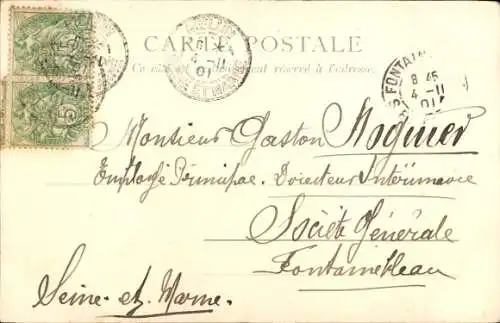 CARTE POSTALE
Ce côté est exclusivement réservé à l'adresse.
FONTAIN
8 45
4 -11
01
4 -11
01
SEINE ET MARNE
5
Monsieur Gaston Noguier
Employé Principal. Directeur Intérimaire
Société Générale
Fontainebleau
Seine-et-Marne.